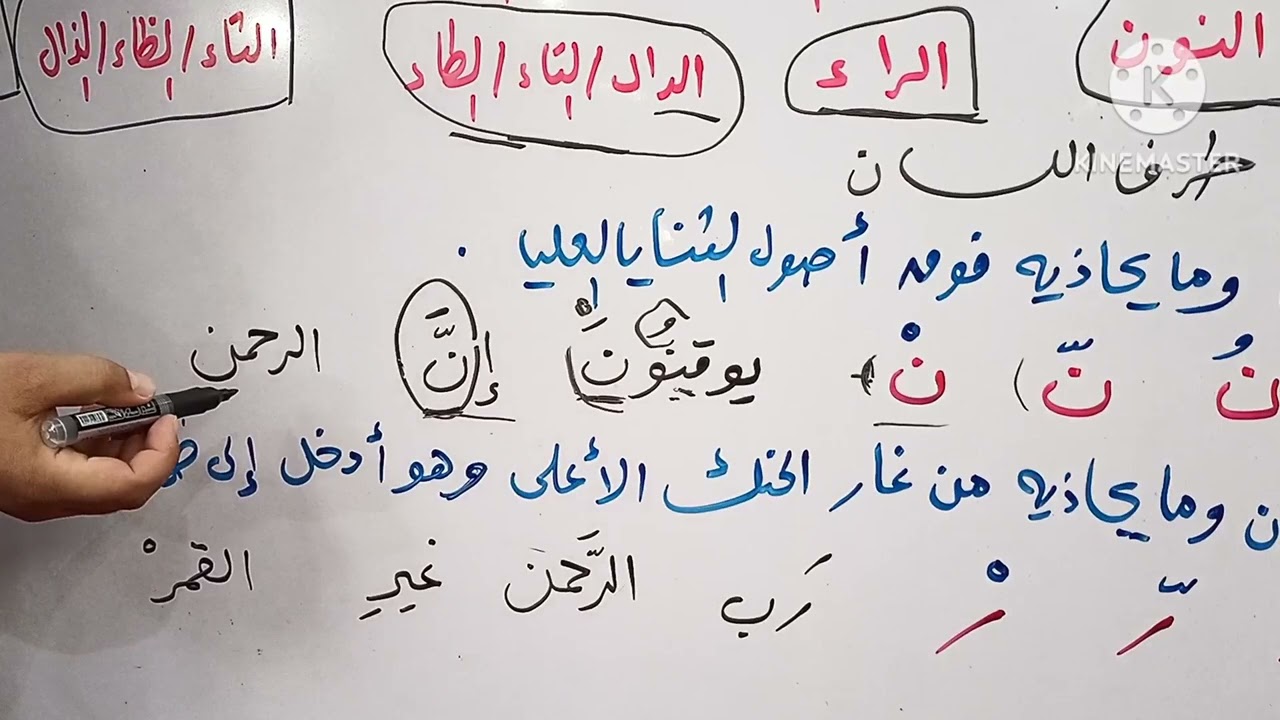 النون الراء الدال/التاء/الطاء الثاء/الظاء/الذال
KINEMASTER
طرف اللسان
وما يحاذيه فوق أصول الثنايا العليا .
نُ نّ نْ يوقنون إنَّ الرحمن
ن وما يحاذيه من غار الحنك الأعلى وهو أدخل إلى
رّ رْ رَب الرَّحمن غيرِ القمرْ